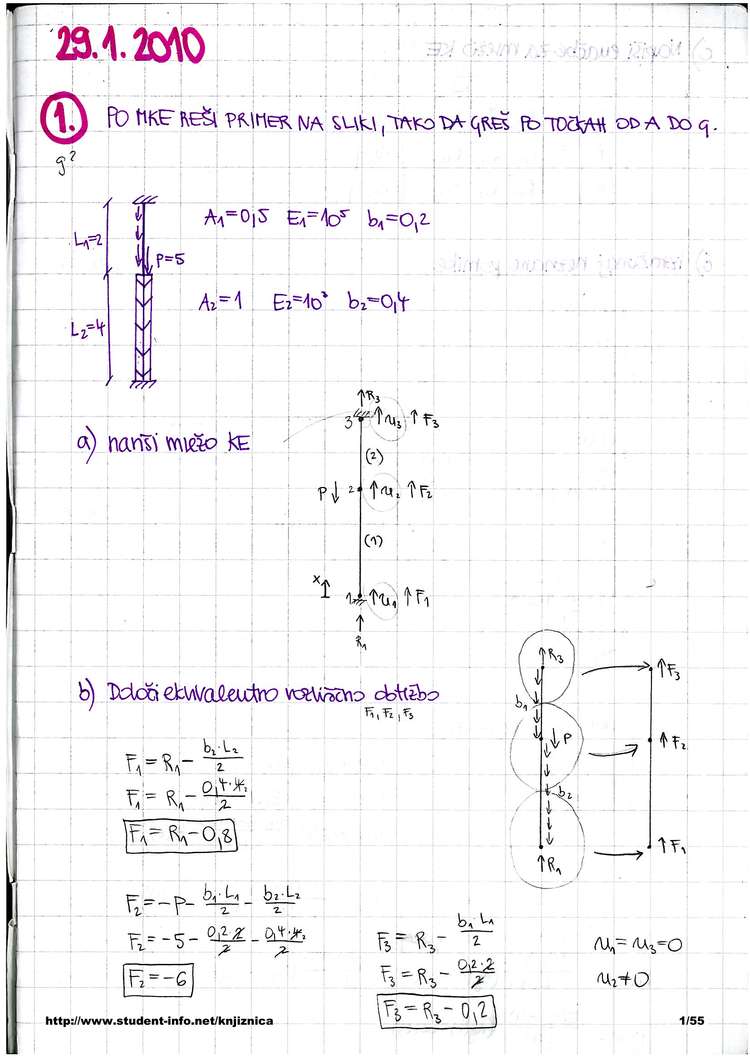 29.1.2010
1. PO MKE REŠI PRIMER NA SLIKI, TAKO DA GREŠ PO TOČKAH OD A DO g.
g?
L₁=2
P=5
A₁=0,5 E₁=10⁵ b₁=0,2
L₂=4
A₂=1 E₂=10³ b₂=0,4
a) nariši mrežo KE
R₃
3 u₃ F₃
(2)
P 2 u₂ F₂
(1)
x
1 u₁ F₁
R₁
b) Določi ekvivalentno vozliščno obtežbo
F₁, F₂, F₃
R₃ F₃
b₁
P F₂
b₂
R₁ F₁
F₁ = R₁ - b₂·L₂/2
F₁ = R₁ - 0,4·4/2
F₁ = R₁ - 0,8
F₂ = -P - b₁·L₁/2 - b₂·L₂/2
F₂ = -5 - 0,2·2/2 - 0,4·4/2
F₂ = -6
F₃ = R₃ - b₁·L₁/2
F₃ = R₃ - 0,2·2/2
F₃ = R₃ - 0,2
u₁ = u₃ = 0
u₂ ≠ 0
http://www.student-info.net/knjiznica
1/55